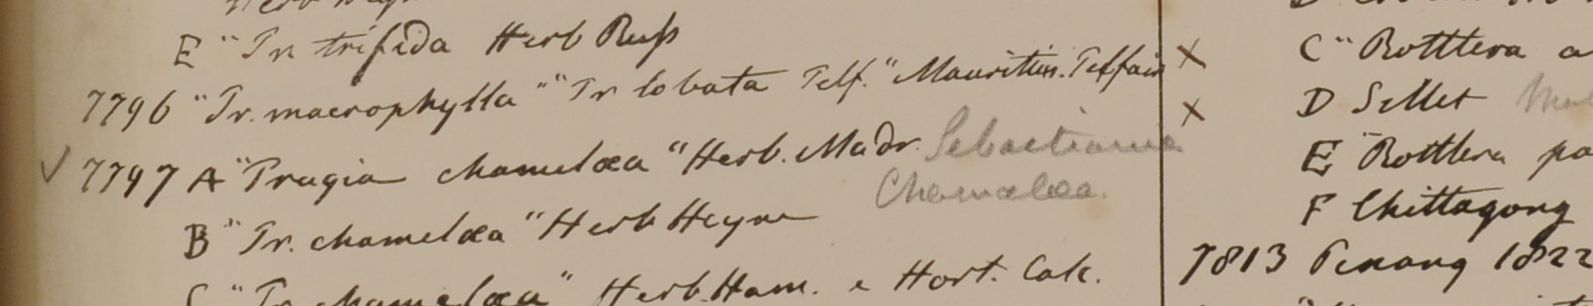 E "Tr. trifida Herb Russ
7796 "Tr. macrophylla" "Tr lobata Telf." Mauritius. Telfair
7797 A "Tragia chamelæa" Herb. Madr. Sebastiania
Chamælea.
B "Tr. chamelæa" Herb Heyne
C "Tr. chamelæa" Herb. Ham. e Hort. Calc.
x C "Rottlera a
x D Sillet
E "Rottlera pa
F Chittagong
7813 Penang 1822